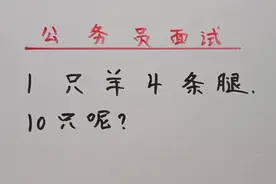 公务员面试
1只羊4条腿.
10只呢?